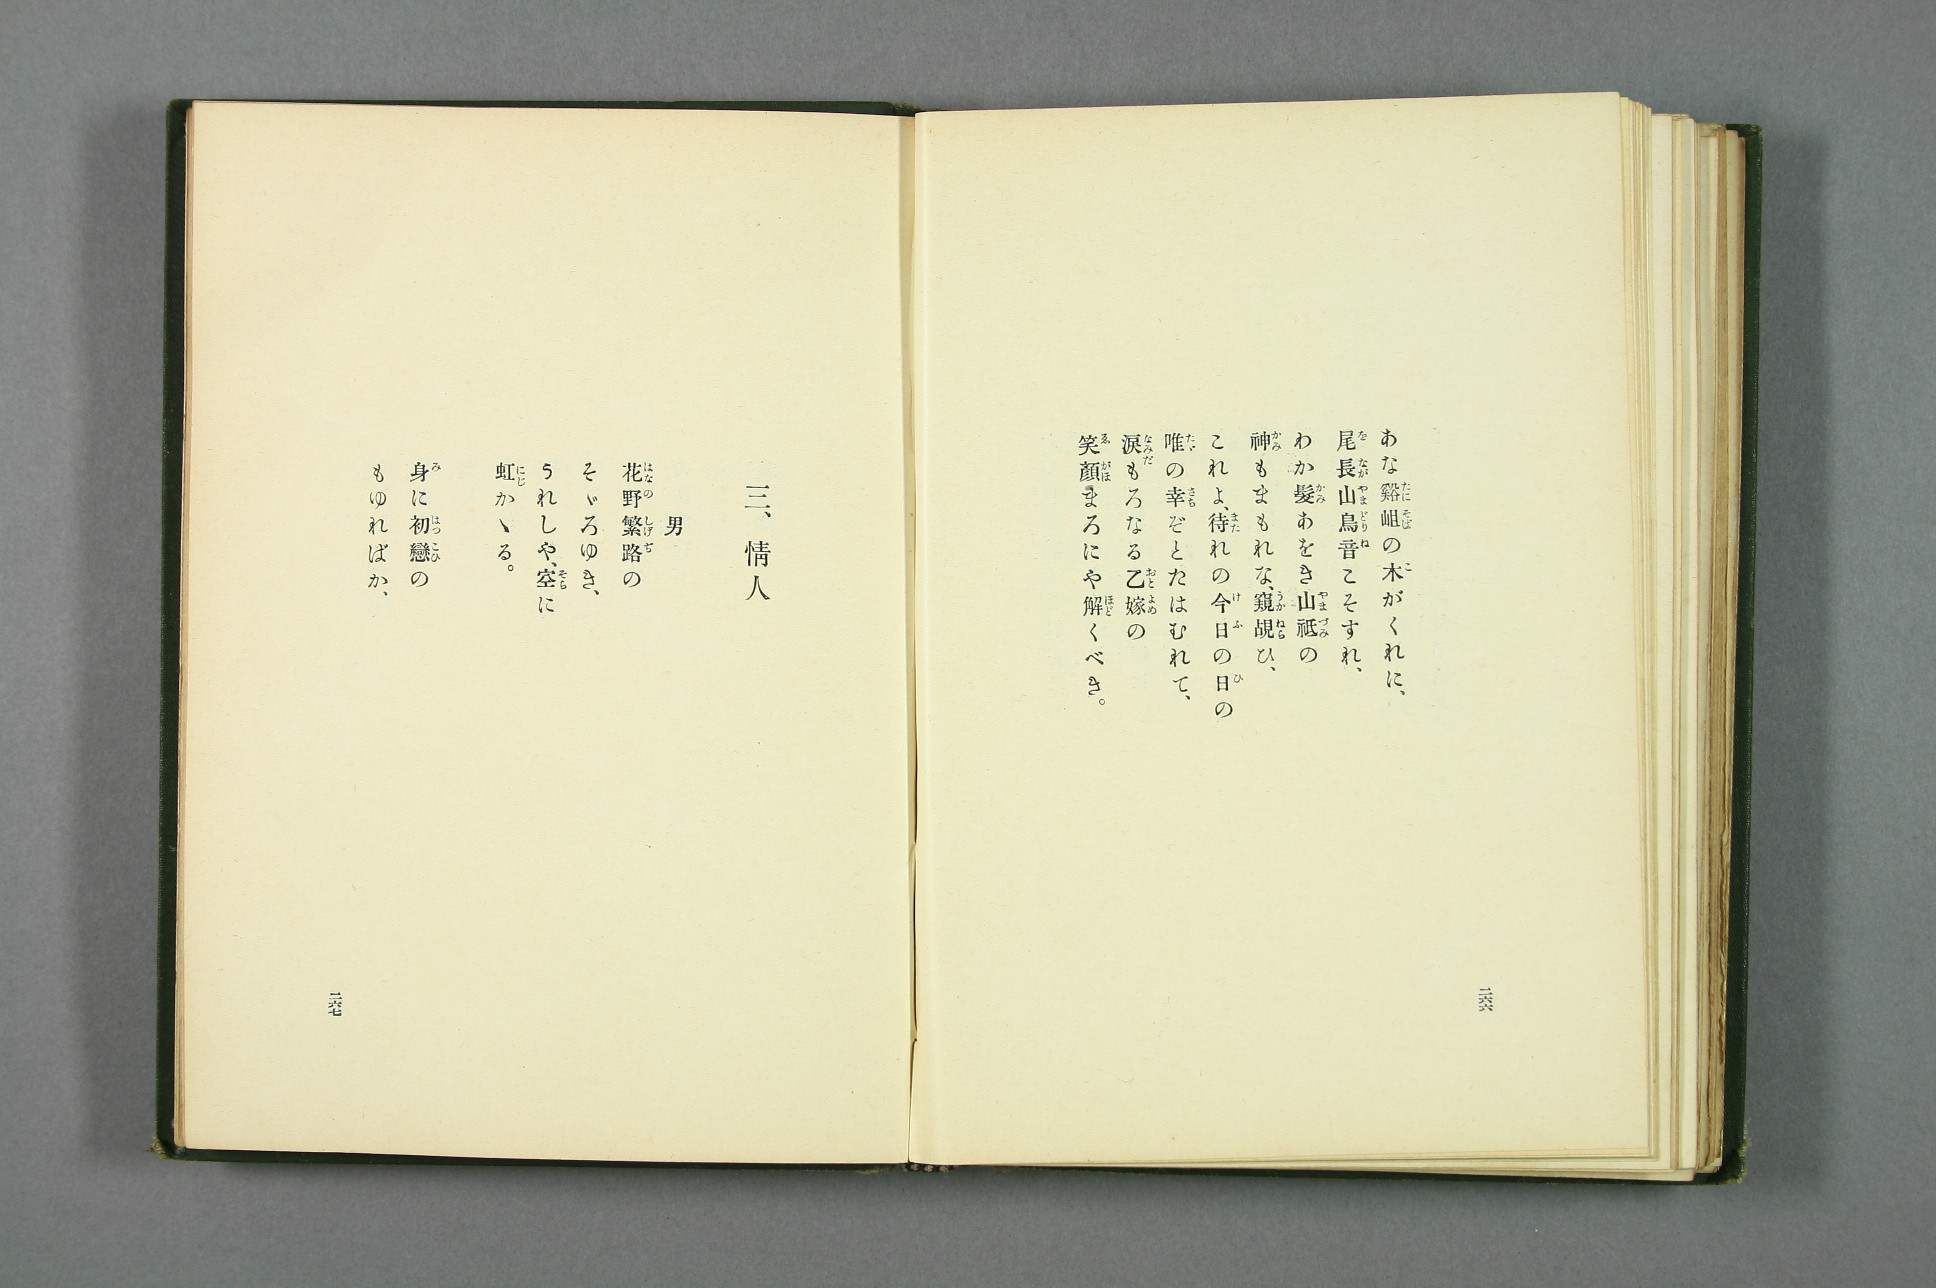 あな谿岨の木がくれに、
尾長山鳥音こそすれ、
わか髮あをき山祇の
神もまもれな、窺覘ひ、
これよ、待れの今日の日の
唯の幸ぞとたはむれて、
淚もろなる乙嫁の
笑顏まろにや解くべき。
二六六
三、情人
男
花野繁路の
そゞろゆき、
うれしや、空に
虹かゝる。
身に初戀の
もゆればか、
二六七